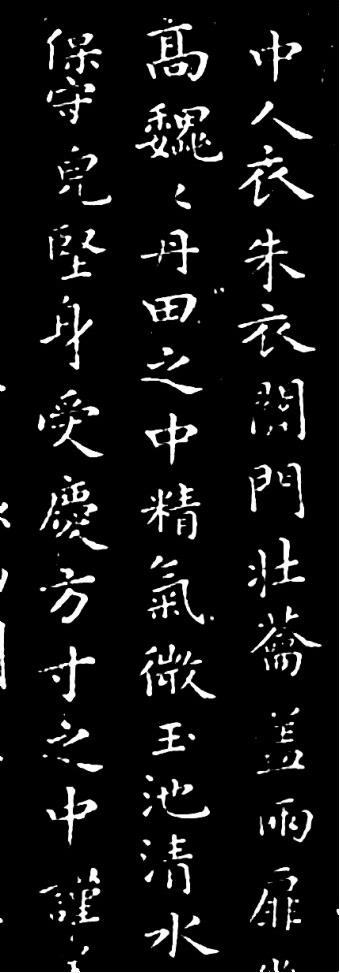 中人衣朱衣關門壯籥盖兩扉
髙魏〻丹田之中精氣微玉池清水
保守皃堅身受慶方寸之中謹